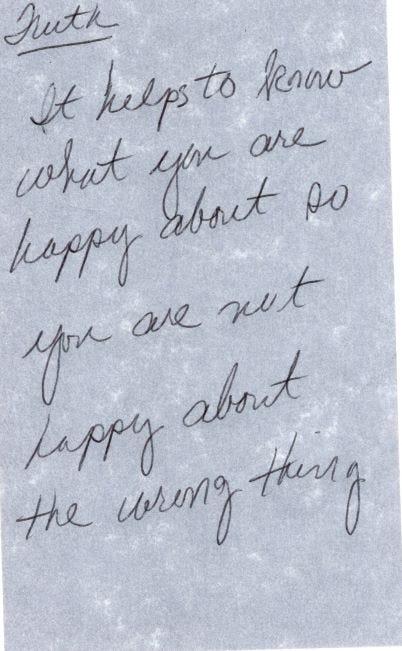 Truth
It helps to know
what you are
happy about so
you are not
happy about
the wrong thing